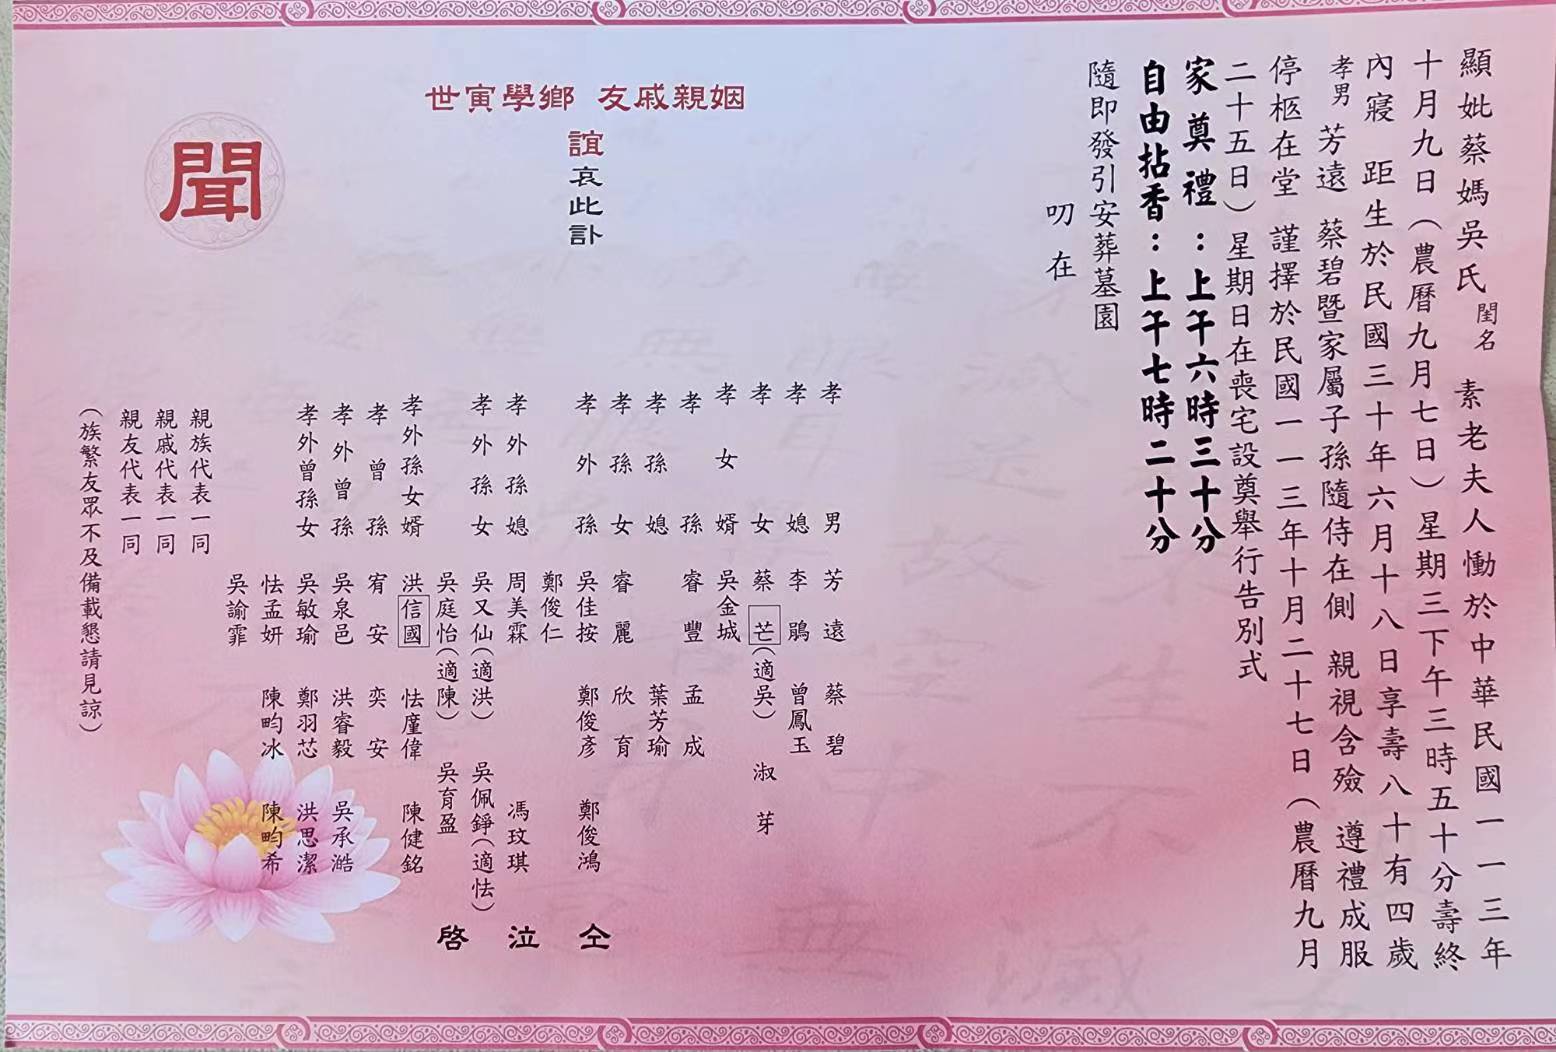 顯妣蔡媽吳氏閨名 素老夫人慟於中華民國一一三年
十月九日（農曆九月七日）星期三下午三時五十分壽終
內寢 距生於民國三十年六月十八日享壽八十有四歲
孝男 芳遠 蔡碧暨家屬子孫隨侍在側 親視含殮 遵禮成服
停柩在堂 謹擇於民國一一三年十月二十七日（農曆九月
二十五日）星期日在喪宅設奠舉行告別式
家奠禮：上午六時三十分
自由拈香：上午七時二十分
隨即發引安葬墓園
叨在
姻親戚友 鄉學寅世
誼哀此訃
聞
孝男 芳遠 蔡碧
孝媳 李鵑 曾鳳玉
孝女 蔡芒（適吳） 淑芽
孝女婿 吳金城
孝孫 睿豐 孟成
孝孫媳 葉芳瑜
孝孫女 睿麗 欣育
孝外孫 吳佳按 鄭俊彥 鄭俊鴻
鄭俊仁
孝外孫媳 周美霖 馮玟琪
孝外孫女 吳又仙（適洪） 吳佩錚（適怯）
吳庭怡（適陳） 吳育盈
孝外孫女婿 洪信國 怯廑偉 陳健銘
孝曾孫 宥安 奕安
孝外曾孫 吳泉邑 洪睿毅 吳承澔
孝外曾孫女 吳敏瑜 鄭羽芯 洪思潔
怯孟妍 陳畇冰 陳畇希
吳諭霏
仝泣啓
親族代表一同
親戚代表一同
親友代表一同
（族繁友眾不及備載懇請見諒）